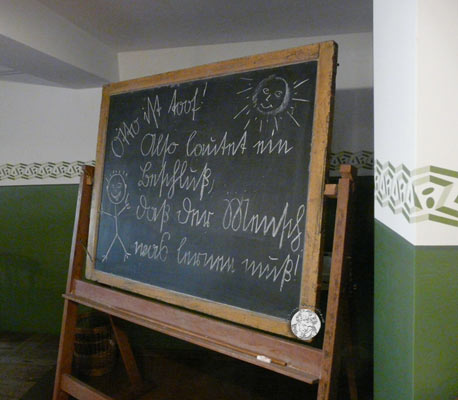 Otto ist doof!
Also lautet ein
Beschluß,
daß der Mensch
was lernen muß!